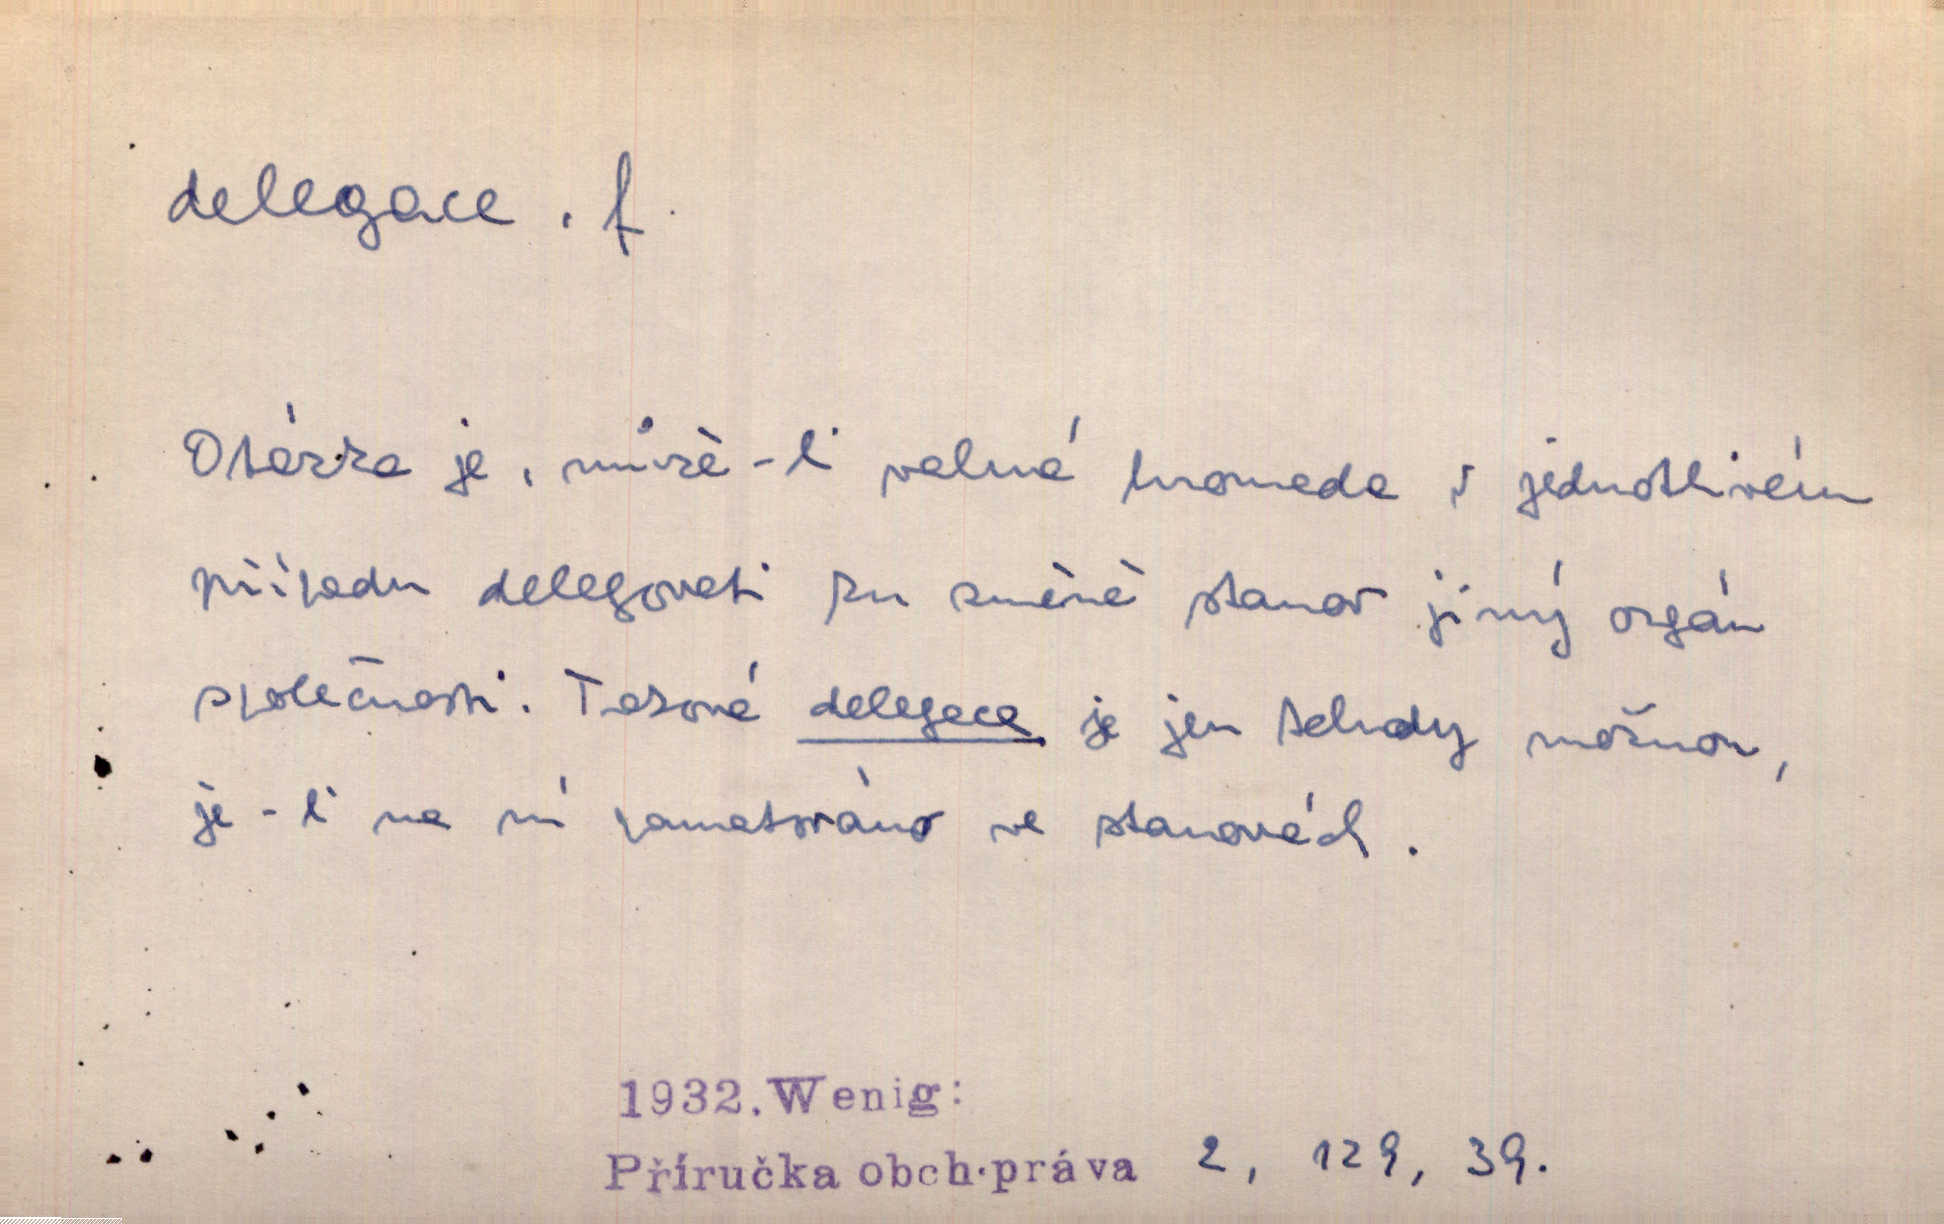 delegace, f.
Otázka je, může-li valná hromada v jednotlivém
případu delegovati ku změně stanov jiný orgán
společnosti. Taková delegace je jen tehdy možnou,
je-li na ni pamatováno ve stanovách.
1932. Wenig:
Příručka obch. práva 2, 129, 39.